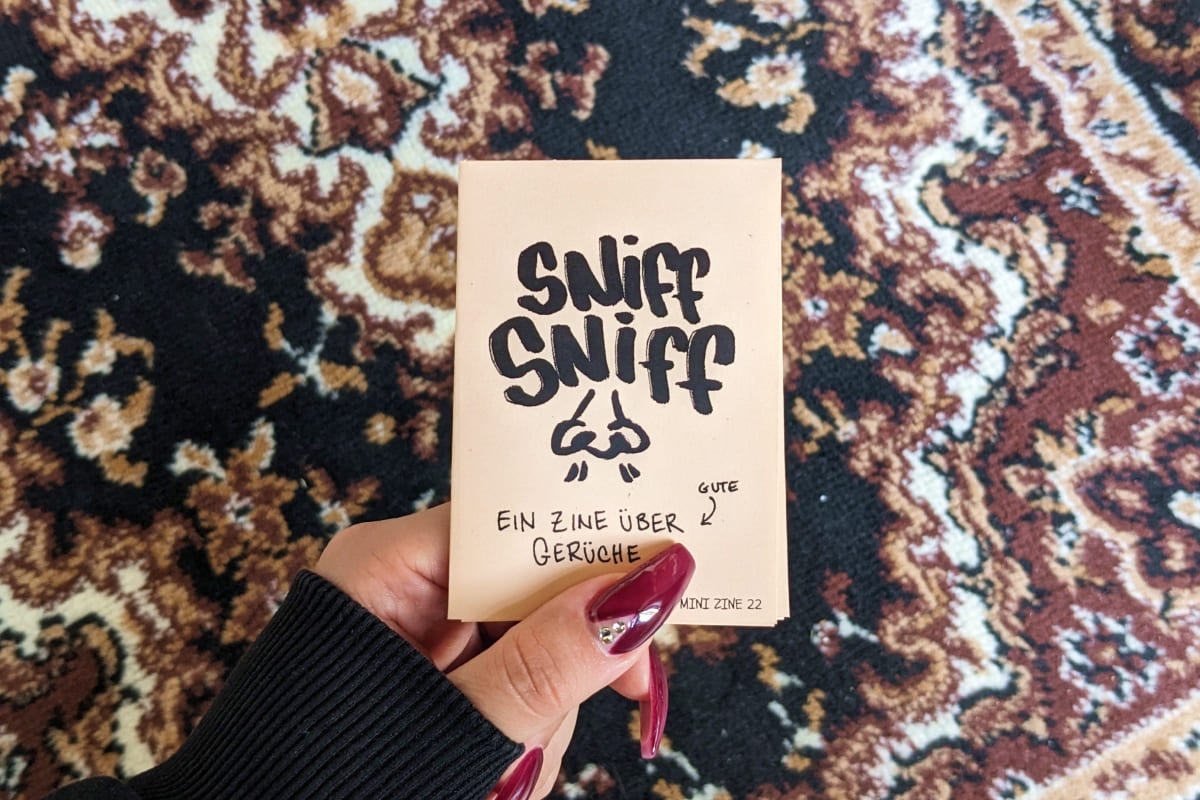 SNiff
SNiff
GUTE
EIN ZINE ÜBER
GERÜCHE
MINI ZINE 22